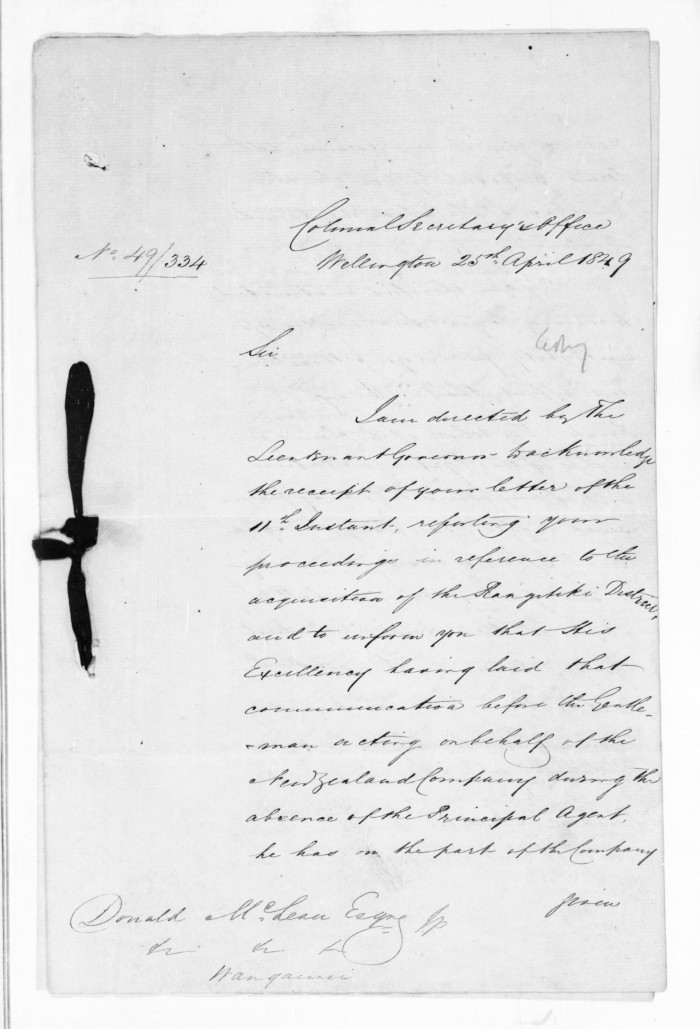 Colonial Secretary's Office
No. 49/334
Wellington 25th April 1849
Sir
I am directed by the
Lieutenant Governor to acknowledge
the receipt of your letter of the
11th Instant, reporting your
proceedings in reference to the
acquisition of the Rangitiki District,
and to inform you that His
Excellency having laid that
communication before the Gentle-
-man acting on behalf of the
New Zealand Company during the
absence of the Principal Agent,
he has on the part of the Company
given
Donald McLean Esqre JP
&c &c &c
Wanganui